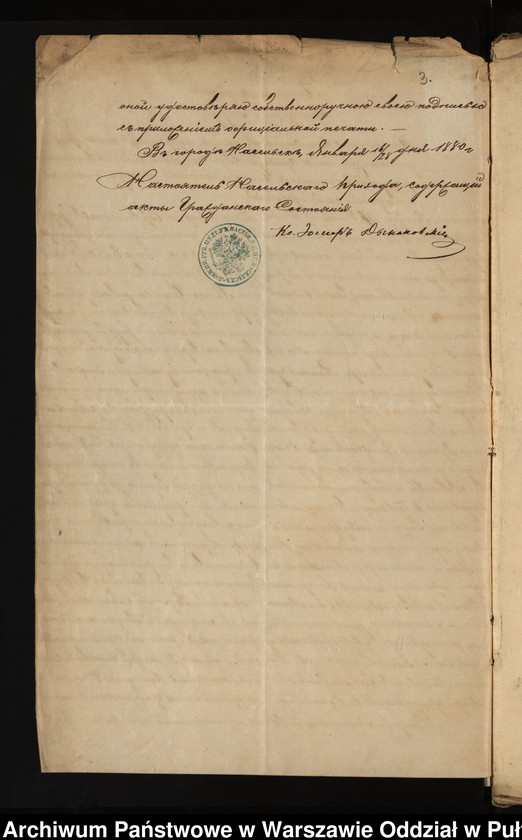 3.
оной удостовѣряю собственноручною своею подписью
съ приложеніемъ оффиціальной печати. —
Въ городѣ Насельскѣ, Января 16/28 дня 1880 г
Настоятель Насельскаго прихода, содержащій
акты Гражданскаго Состоянія
Кс.
Archiwum Państwowe w Warszawie Oddział w Puł